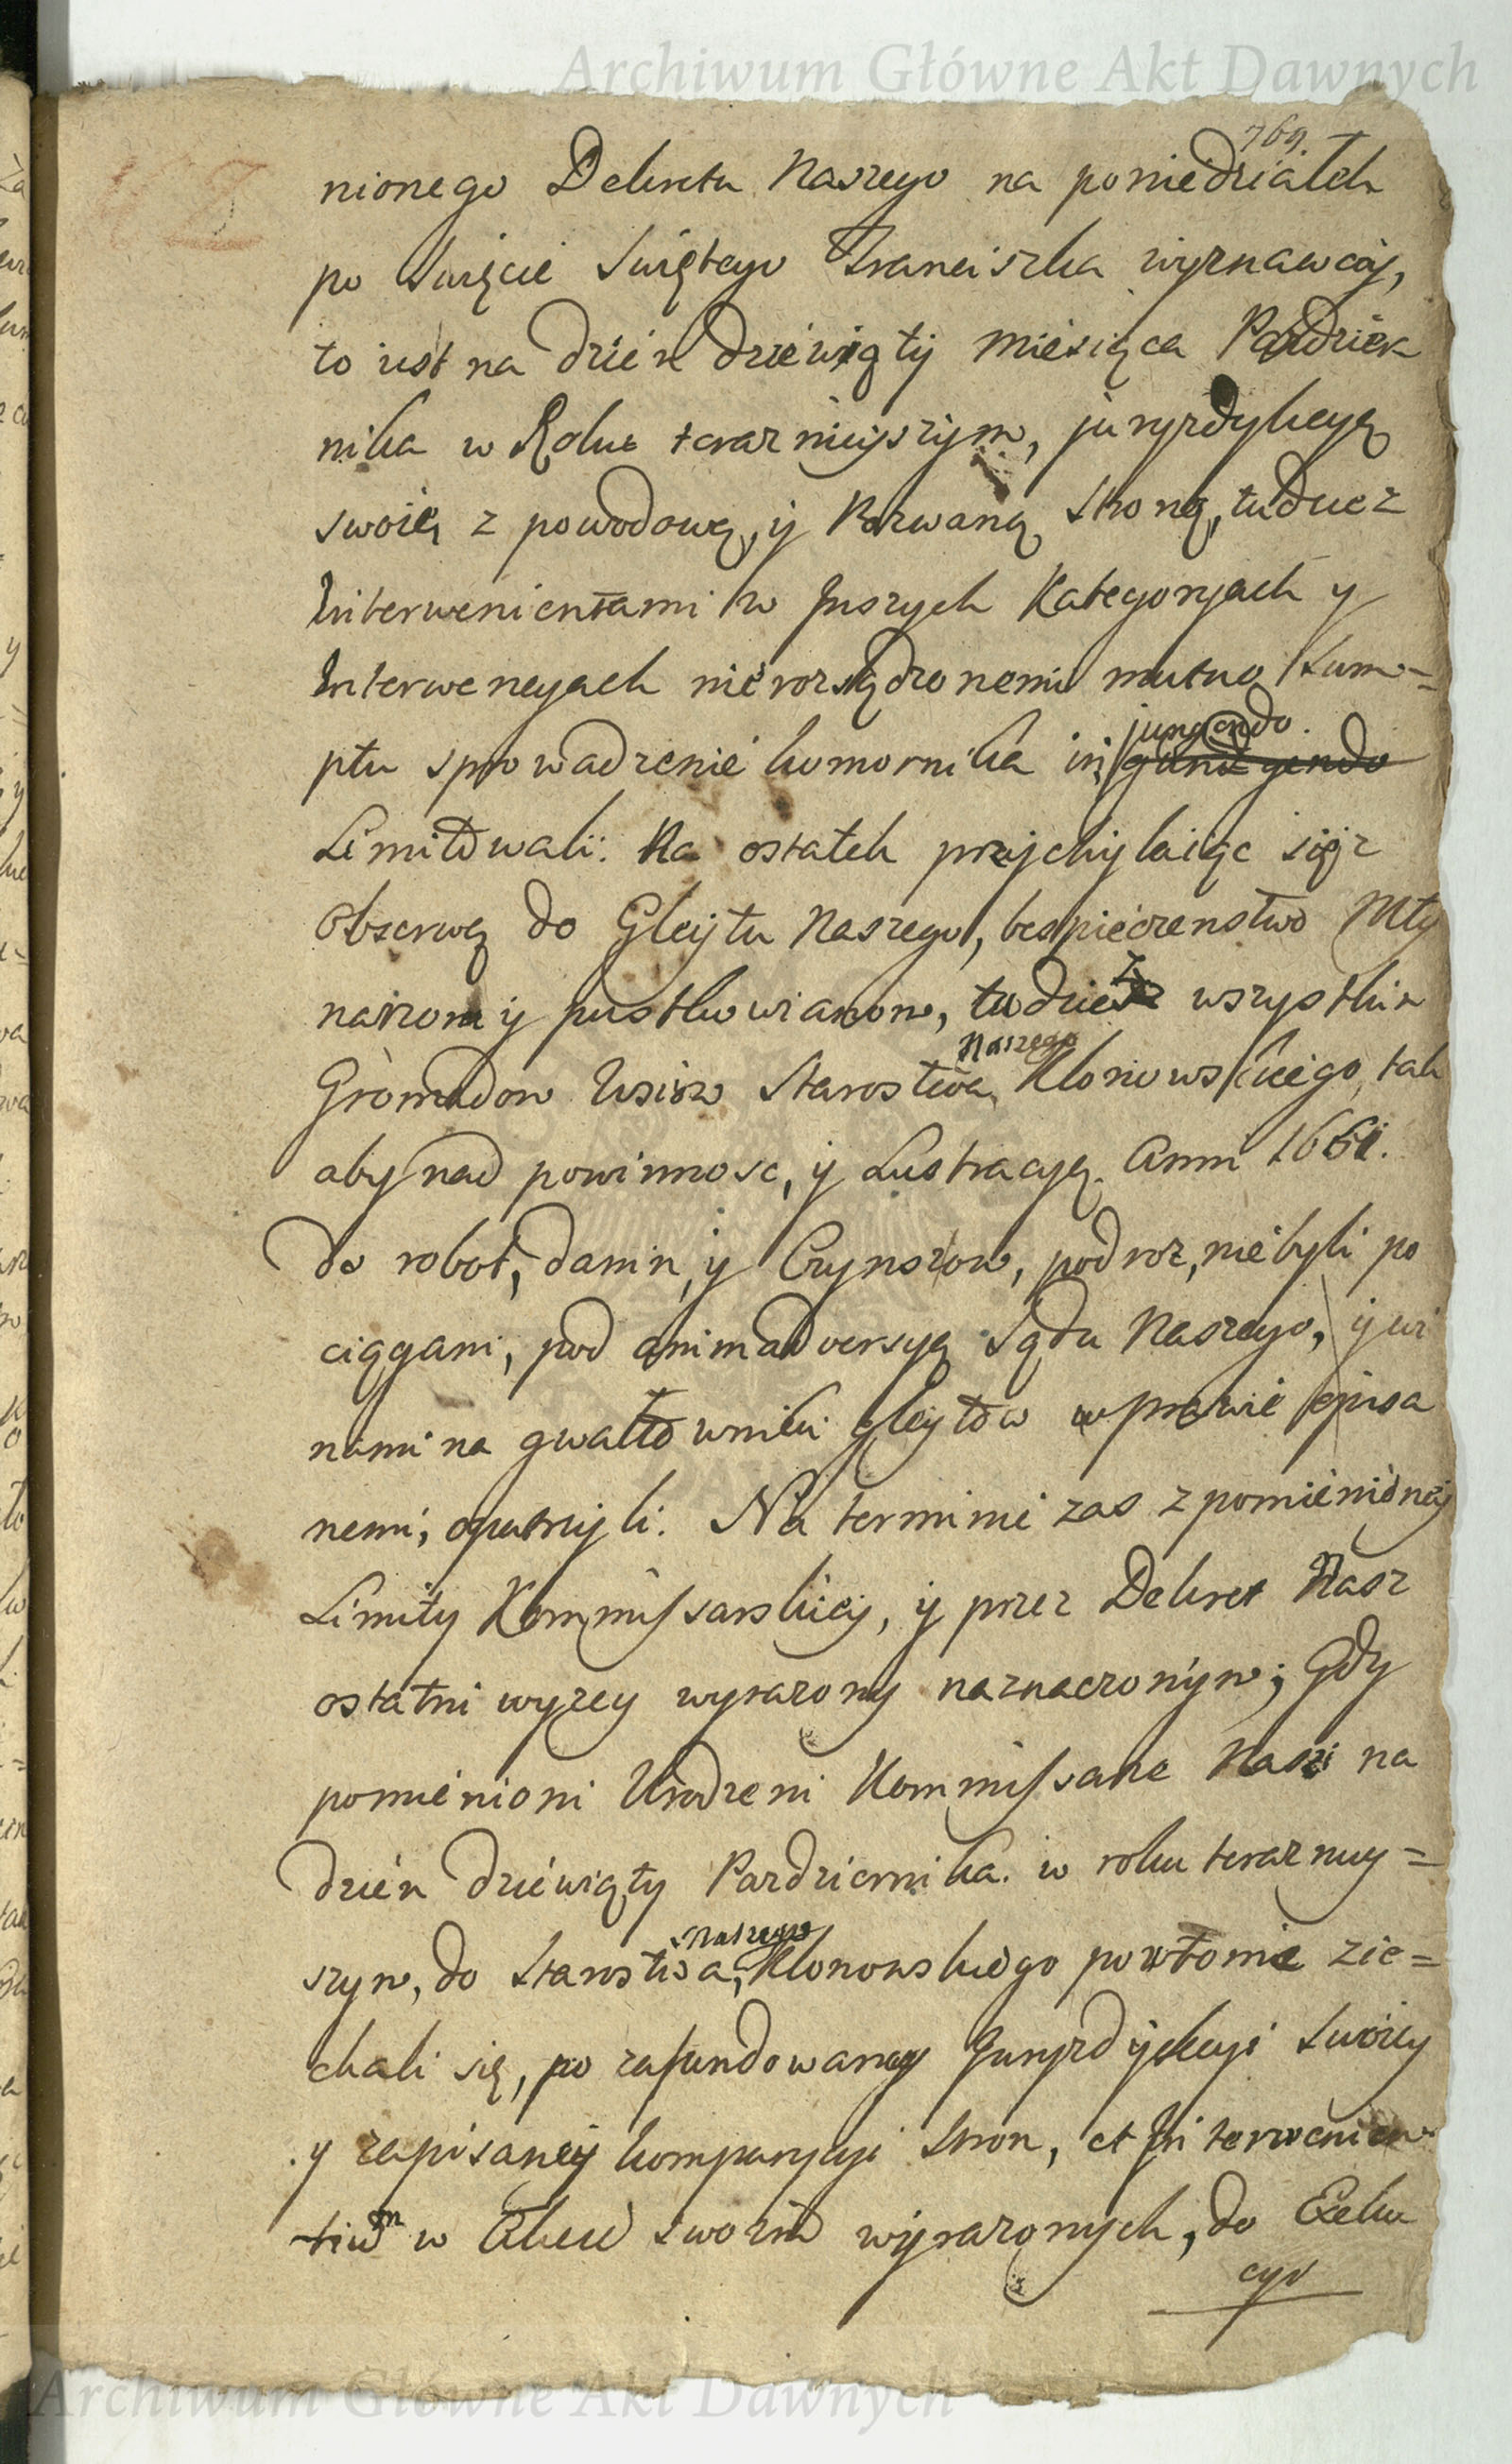 Archiwum Główne Akt Dawnych
769.
nionego Dekretu Naszego na poniedziałek
po Swięcie Swiętego Franciszka wyznawcy,
to iest na dzień dziewiąty Miesiąca Pazdzier
nika w Roku teraznieyszym, juryzdykcyą
swoię z powodową, y Pozwaną Stroną, tudziez
Interwenientami w Inszych Kategoryach y
Interwencyach nierozsądzonemi mutuo Sum=
ptu sprowadzenie komornika in jungendo.
Limitowali: Na ostatek przychylaiąc się z
Obserwą do Gleytu Naszego, bespieczenstwo Mły
narzom y pustkowianom, tudziesz wszystkim
Gromadom Wsiow Starostwa Naszego Klonowskiego, tak
aby nad powinnosc, y Lustracyą Anni 1661.
do robot, danin, y Czynszow, podroz, niebyli po
ciągani, pod animadversyą Sądu Naszego, y wi
nami na gwałtowniki gleytow w prawie opisa
nemi, opatrzyli. Na terminie zas z pomienioney
Limity Kommissarskiey, y przez Dekret Nasz
ostatni wyzey wyrazony naznaczonym; Gdy
pomienioni Urodzeni Kommissarze Nasi na
dzien dziewiąty Pazdziernika w roku teraznuy=
szym, do Starostwa, Naszego Klonowskiego powtornie zie=
chali się, po zafundowaney Juryzdykcyi Swoiey
y zapisaney komparycyi Stron, et Interwenien
tium w Akcie swoim wyrazonych, do Exeku
cyi
Archiwum Główne Akt Dawnych